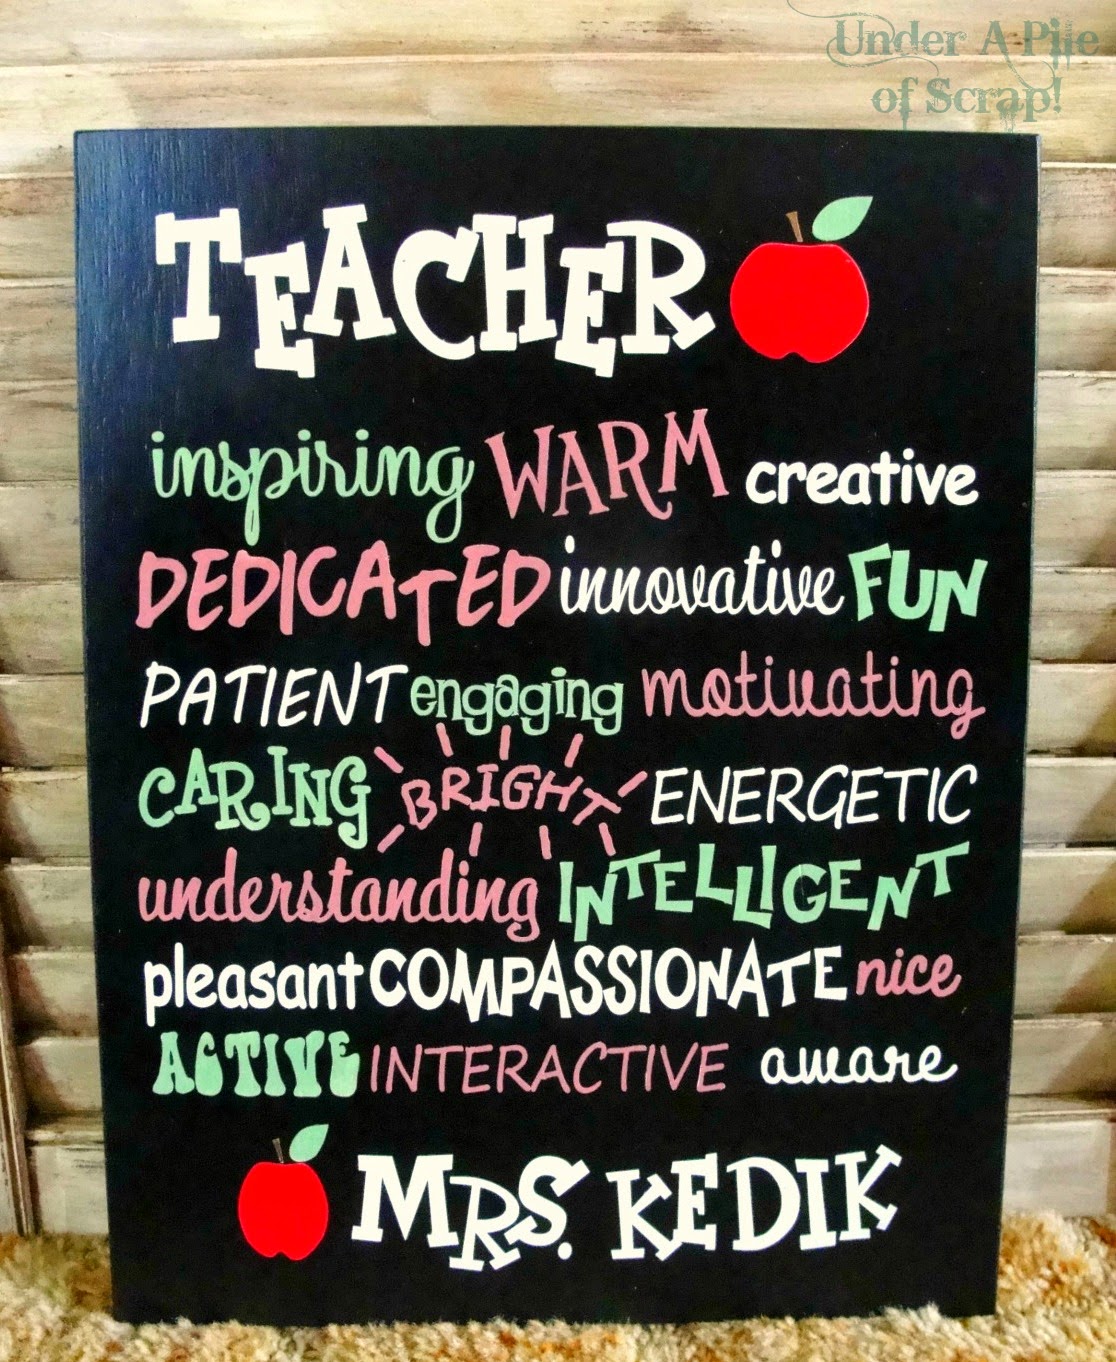 Under A Pile
of Scrap!
TEACHER
inspiring WARM creative
DEDICATED innovative FUN
PATIENT engaging motivating
CARING BRIGHT ENERGETIC
understanding INTELLIGENT
pleasant COMPASSIONATE nice
ACTIVE INTERACTIVE aware
MRS. KEDIK